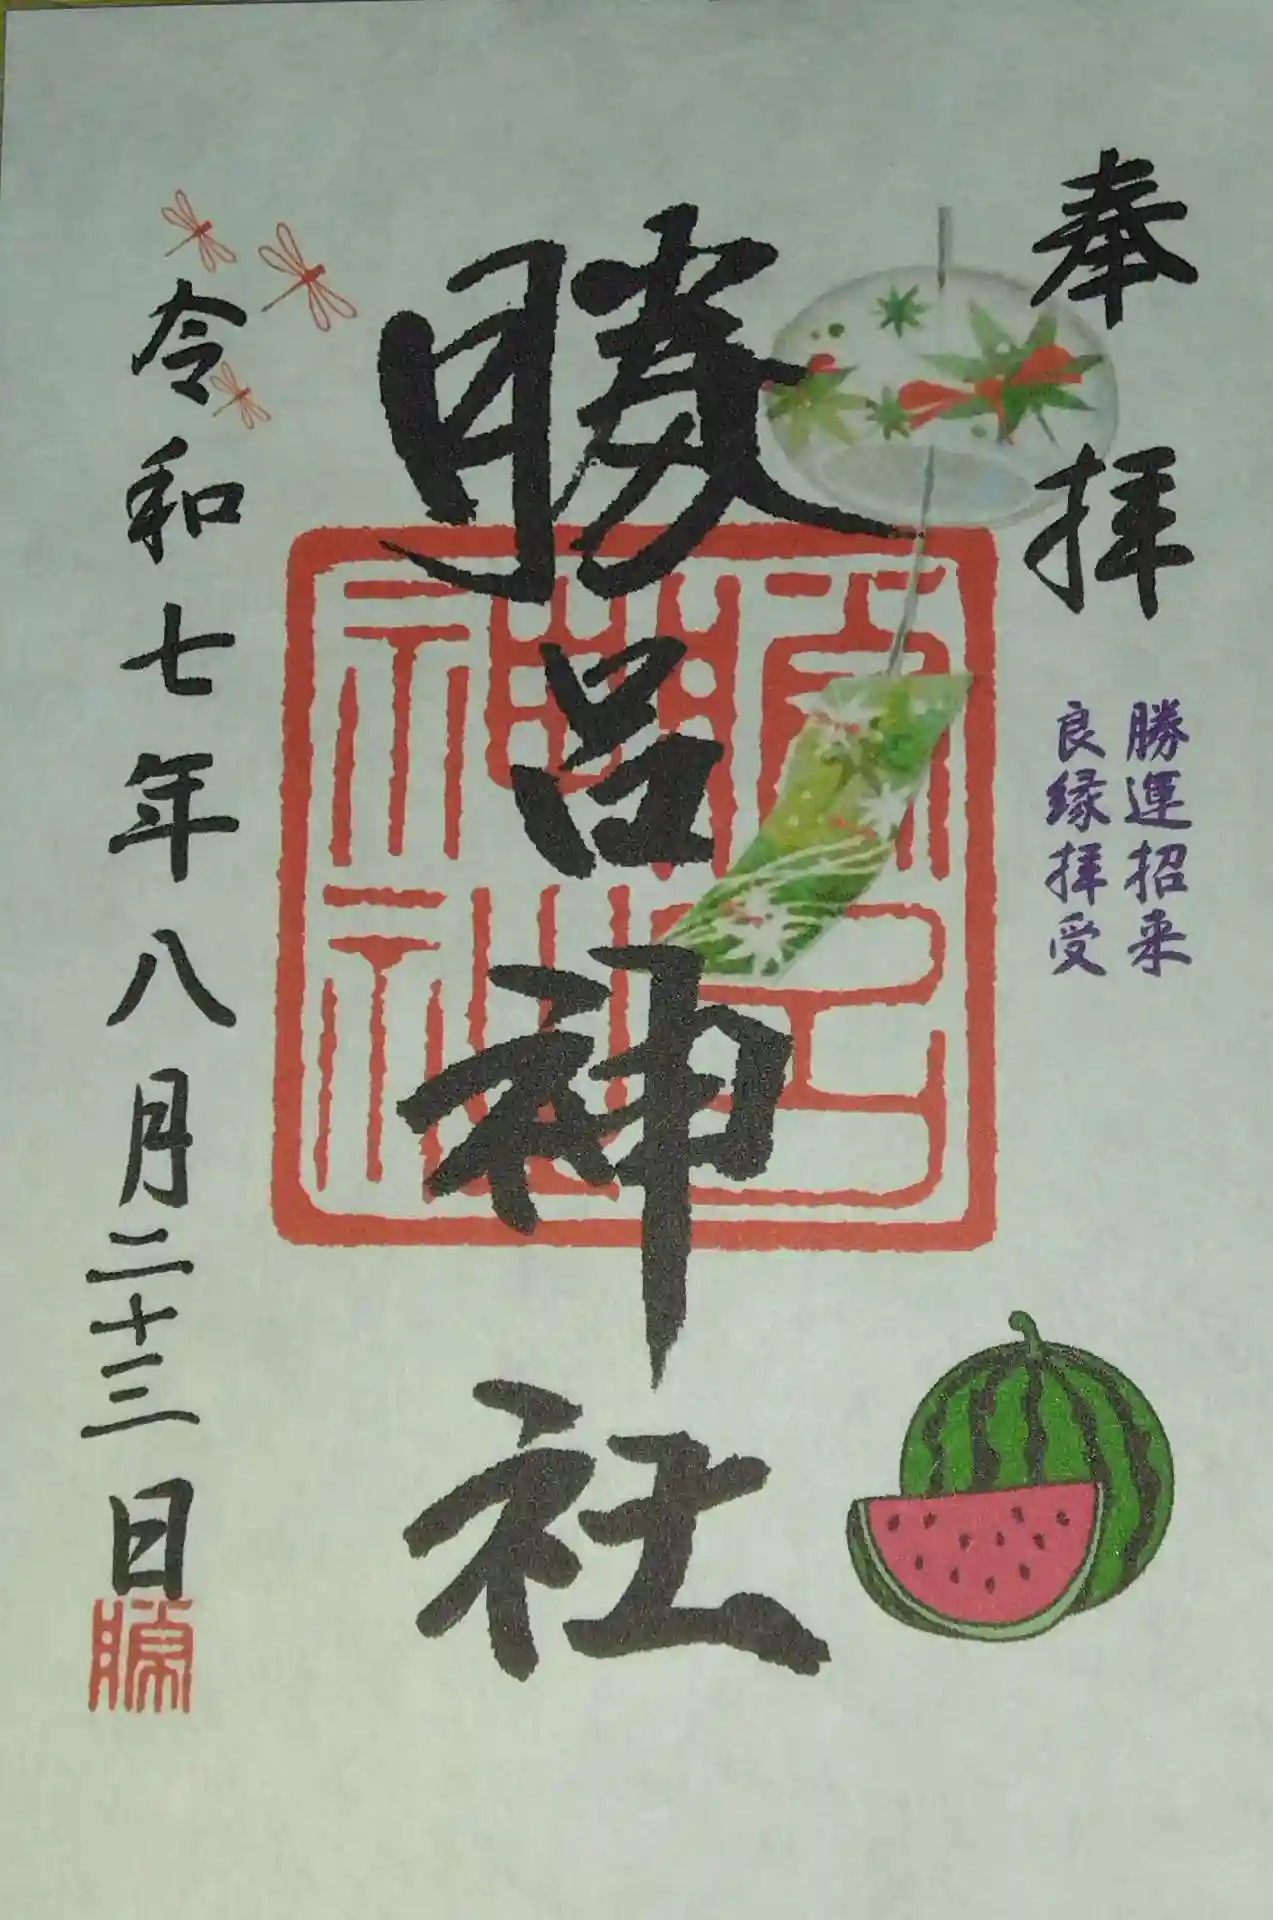 奉拝
勝運招来
良縁拝受
勝呂神社
勝呂神社
令和七年八月二十三日
勝